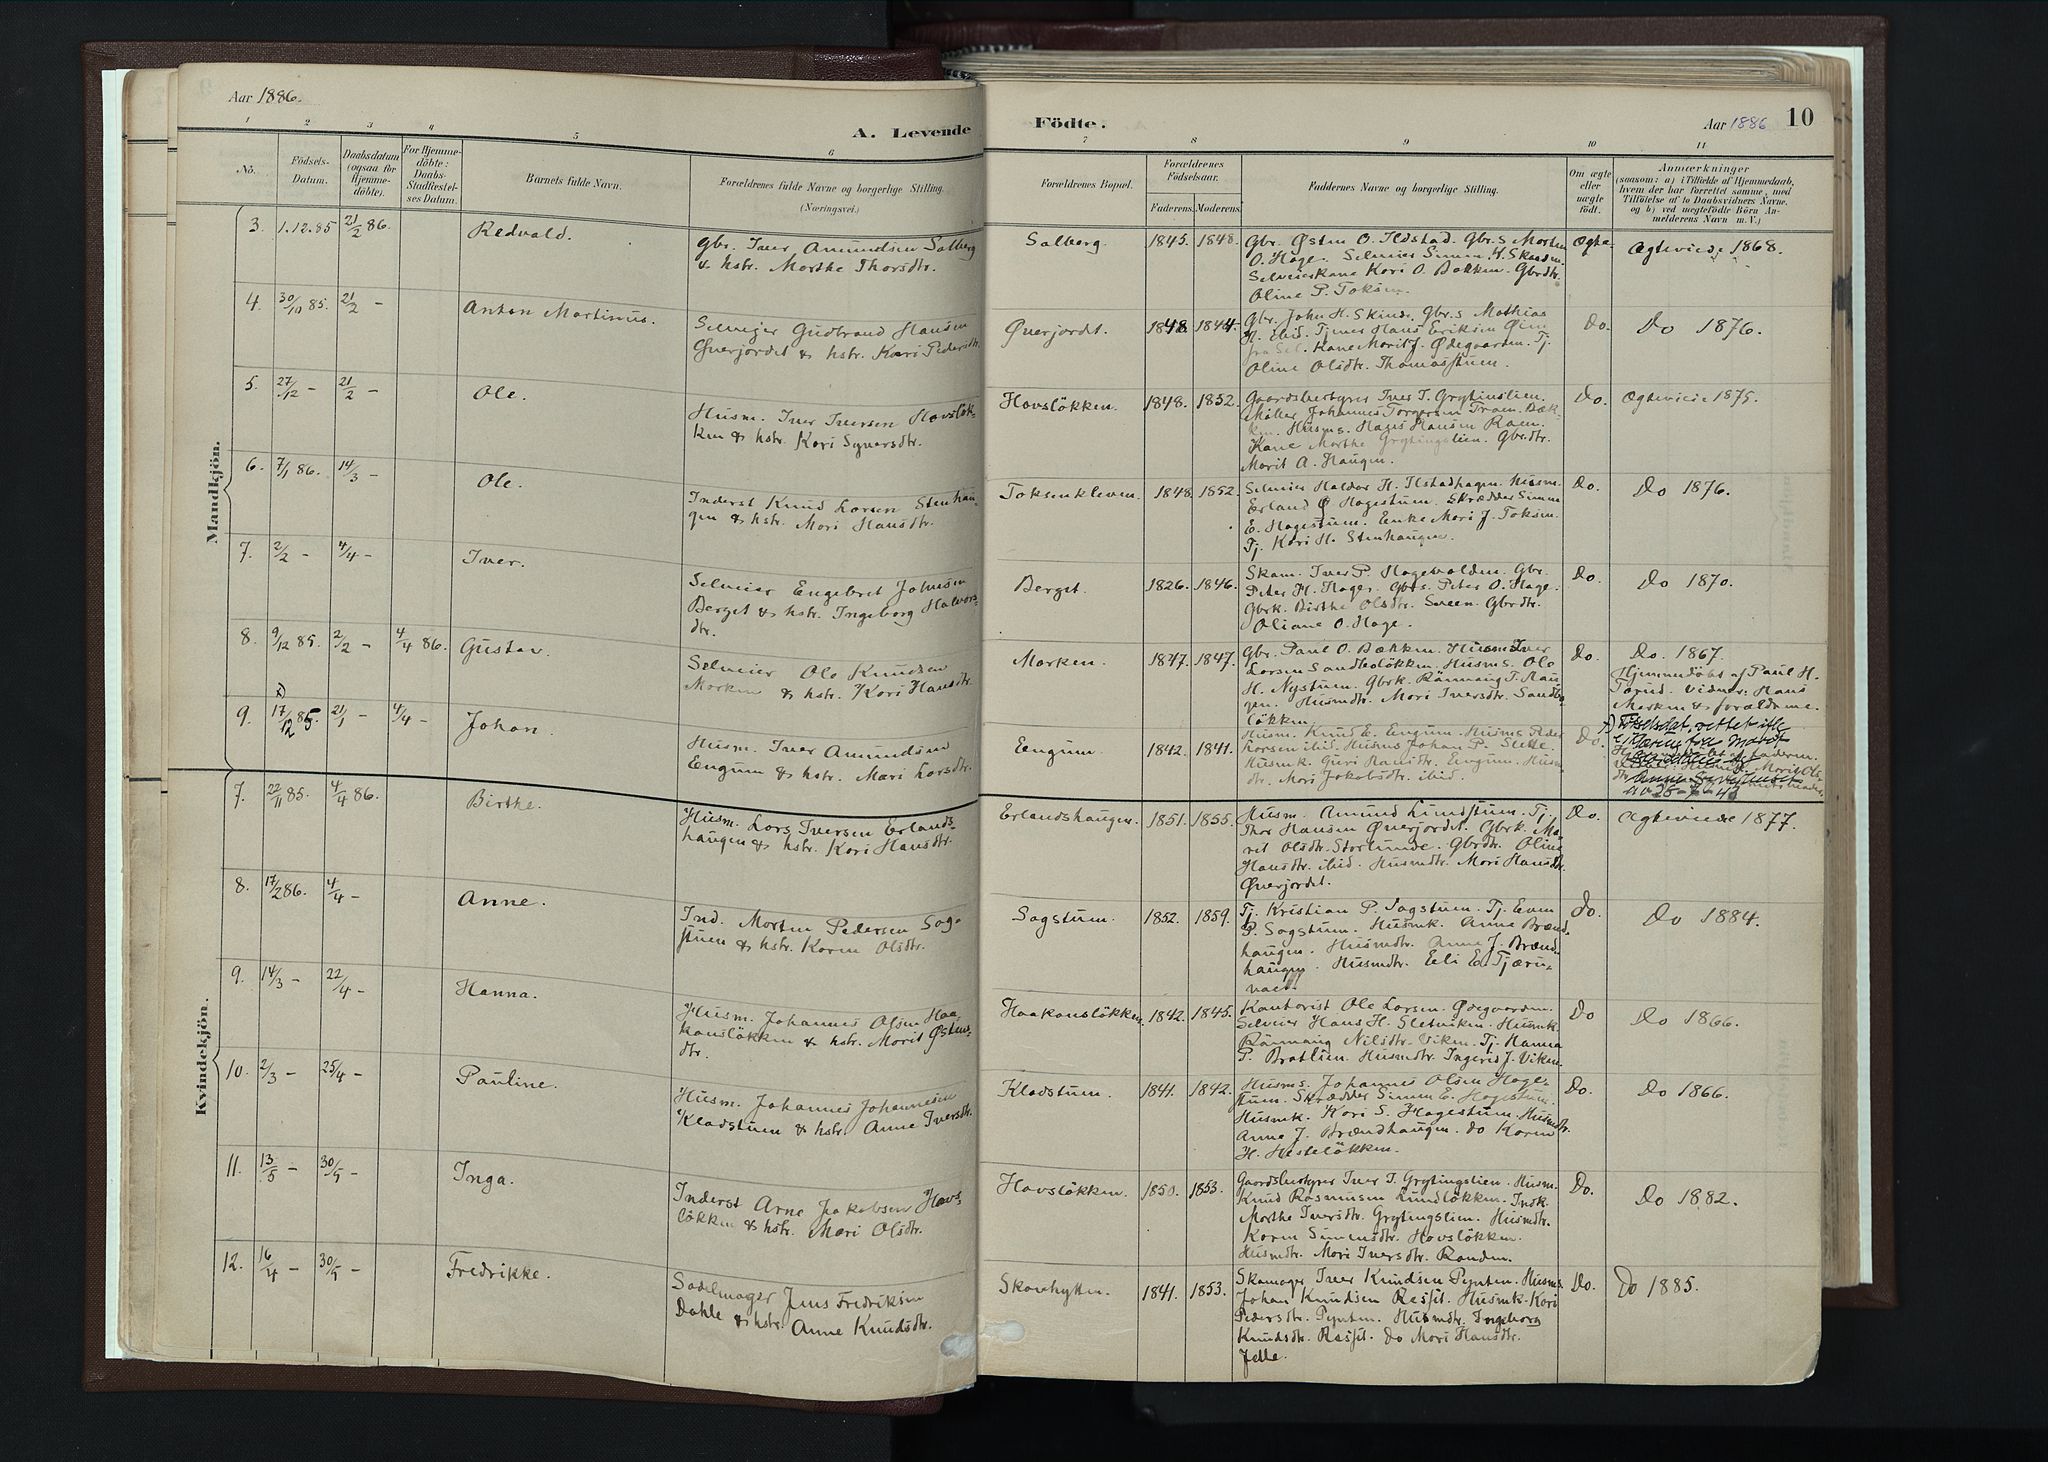 Aar 1886.
A. Levende
Födte.
Aar 1886
10
1 2 3 4 5 6 7 8 9 10 11
No.
Födsels-
Datum.
Daabsdatum
(ogsaa for
Hjemme-
döbte).
For Hjemme-
döbte:
Daabs-
Stadfæstel-
ses Datum.
Barnets fulde Navn.
Forældrenes fulde Navne og borgerlige Stilling.
(Næringsvei.)
Forældrenes Bopæl.
Forældrenes
Födselsaar.
Faderens. Moderens.
Faddernes Navne og borgerlige Stilling.
Om ægte
eller
uægte
födt.
Anmærkninger
(saasom: a) i Tilfælde af Hjemmedaab,
hvem der har forrettet samme, med
Tilföielse af to Daabsvidners Navne,
og b) ved uægtefödte Börn An-
melderens Navn m. V.)
Mandkjön.
3. 1.12.85 21/2 86. Redvald.
Gbr. Iver Amundsen Solberg
& hstr. Marthe Thorsdtr.
Solberg. 1845. 1848.
Gbr. Østen O. Ildstad. Gbr.s Morten
O. Hage. Selveier Simen
Selveierkone Kari O. Bakken. Gbrdtr.
Oline P. Toksen.
Ægte. Ægteviede 1868.
4. 30/10 85. 21/2 - Anton Martinus.
Selveier Gudbrand Hansen
Øverjordet & hstr. Kari Pedersdtr.
Øverjordet. 1848. 1844.
Gbr. John H. Skinde. Gbr.s Mathias
H. ibid. Tjener Hans Eriksen
fra Sel. Kone Marit J. Ødegaarden. Tj.
Oline Olsdtr. Thomasstuen.
Do. Do 1876.
5. 27/12 - 21/2 - Ole.
Husm. Iver Iversen Hovsløk-
ken & hstr. Kari Syversdtr.
Hovsløkken. 1848. 1852.
Gaardsbestyrer Iver T. Grytingslien.
Møller Johannes Torgersen Bæk-
ken. Husm.s Hans Hansen
Kone Marthe Grytingslien. Gbrdtr.
Marit A. Haugen.
Do. Ægteviede 1875.
6. 7/1 86. 14/3 - Ole.
Inderst Knud Larsen Stenhau-
gen & hstr. Mari Hansdtr.
Toksenkleven. 1848. 1852.
Selveier Haldor H. Ilstadhagen. Husm.
Erland Ø. Hagestuen. Skrædder Simen
E. Hagestuen. Enke Mari J. Toksen.
Tj. Kari H. Stenhaugen.
Do. Do 1876.
7. 2/2 - 4/4 - Iver.
Selveier Engebret Johnsen
Berget & hstr. Ingeborg Halvors-
dtr.
Berget. 1826. 1846.
Skom. Iver P. Hagevolden. Gbr.
Peter H. Hage. Gbr.s Peter O. Hage.
Gbrk. Birthe Olsdtr. Sveen. Gbrdtr.
Oliane O. Hage.
Do. Do 1870.
8. 9/12 85. 2/2 - 4/4 86. Gustav.
Selveier Ole Knudsen
Morken & hstr. Kari Hansdtr.
Morken. 1847. 1847.
Gbr. Paul O. Bakken. Husm. Iver
Larsen Sandboløkken. Husm.s Ole
H. Nystuen. Gbrk. Rønnaug T. Hau-
gen. Husmdtr. Mari Iversdtr. Sandbo-
løkken.
Do. Do. 1867.
Hjemmedöbt af Paul H.
Torud. Vidner: Hans
Morken & forældrene.
9. 17/12 85. 21/1 - 4/4 - Johan.
Husm. Iver Amundsen
Engum & hstr. Mari Larsdtr.
Engum. 1842. 1841.
Husm. Knud E. Engum. Husm.s Peder
Larsen ibid. Husm.s Johan P. Slette.
Husmk. Guri Hansdtr. Engum. Husm-
dtr. Mari Jakobsdtr. ibid.
Do.
x) Fødselsdat. rettet ifl.
erklæring fra
Kvindekjön.
7. 22/11 85. 4/4 86. Birthe.
Husm. Lars Iversen Erlands-
haugen & hstr. Kari Hansdtr.
Erlandshaugen. 1851. 1855.
Husm. Amund Lundstuen. Tj.
Thor Hansen Øverjordet. Gbrk. Ma-
rit Olsdtr. Storlunde. Gbrdtr. Oline
Hansdtr. ibid. Husmdtr. Mari Hansdtr.
Øverjordet.
Do. Ægteviede 1877.
8. 17/2 86. 4/4 - Anne.
Ind. Morten Pedersen Sag-
stuen & hstr. Karen Olsdtr.
Sagstuen. 1852. 1859.
Tj. Kristian P. Sagstuen. Tj. Even
P. Sagstuen. Husmk. Anna Brænd-
haugen. Husmdtr. Anne J. Brænd-
haugen. Husmdtr. Eli E. Tjæru-
Do. Do 1884.
9. 14/3 - 22/4 - Hanna.
Husm. Johannes Olsen Haa-
kansløkken & hstr. Marit Østens-
dtr.
Haakonsløkken. 1842. 1845.
Kantorist Ole Larsen. Ødegaarden.
Selveier Hans H. Sletviken. Husmk.
Rønnaug Nilsdtr. Viken. Tj. Hanna
P. Bratlien. Husmdtr. Ingerid J. Viken.
Do Do 1866.
10. 2/3 - 25/4 - Pauline.
Husm. Johannes Johannesen
Kladstuen & hstr. Anne Iversdtr.
Kladstuen. 1841. 1842.
Husm.s. Johannes Olsen Hage-
stuen. Skrædder Simen E. Hagestuen.
Husmk. Kari S. Hagestuen. Husmdtr.
Anne J. Brændhaugen. do Karen
H. Hesteløkken.
Do. Do 1866.
11. 13/5 - 30/5 - Inga.
Inderst Arne Jakobsen Hovs-
løkken & hstr. Mari Olsdtr.
Hovsløkken. 1850. 1853.
Gaardsbestyrer Iver T. Grytingslien. Husm.
Knud Rasmussen Rundløkken. Indk.
Marthe Iversdtr. Grytingslien. Husmdtr.
Karen Simensdtr. Hovsløkken.
Husmdtr. Mari Iversdtr. Randen.
Do. Do 1882.
12. 16/4 - 30/5 - Fredrikke.
Sadelmager Jens Fredriksen
Dahle & hstr. Anne Knudsdtr.
Skovhytten. 1841. 1853.
Skomager Iver Knudsen Pynten. Husm.s
Johan Knudsen Resjit. Husmk. Kari
Pedersdtr. Pynten. Husmdtr. Ingeborg
Knudsdtr. Resjit. Do Mari Hansdtr.
Jelle.
Do. Do 1885.